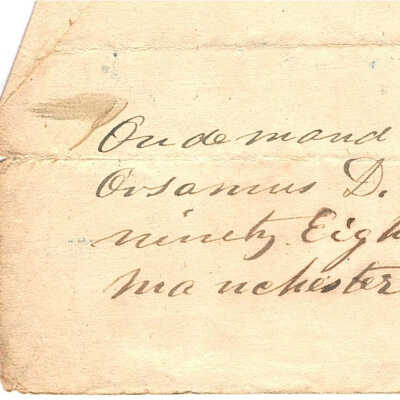 On demand
Orsamus D.
ninety Eigh
Manchester